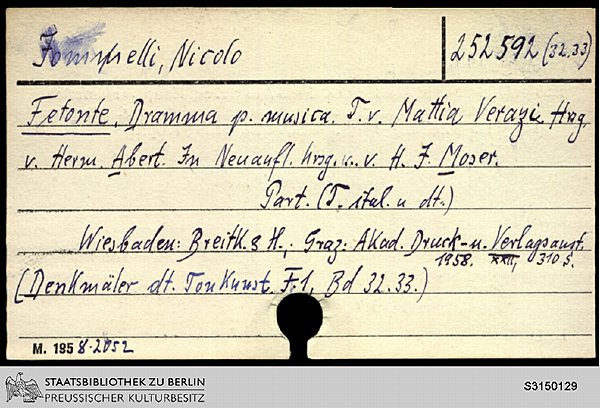 Jommelli, Nicolo
252592 (32.33)
Fetonte. Dramma p. musica. T. v. Mattia Verazi. Hrsg.
v. Herm. Abert. In Neuaufl. hrsg. v. H. J. Moser.
Part. (T. ital. u dt.)
Wiesbaden: Breitk. & H.; Graz: Akad. Druck- u. Verlagsanst.
1958. XXII, 310 S.
(Denkmäler dt. Tonkunst. F. 1, Bd 32.33.)
M. 195 8.2052
STAATSBIBLIOTHEK ZU BERLIN
PREUSSISCHER KULTURBESITZ
S3150129